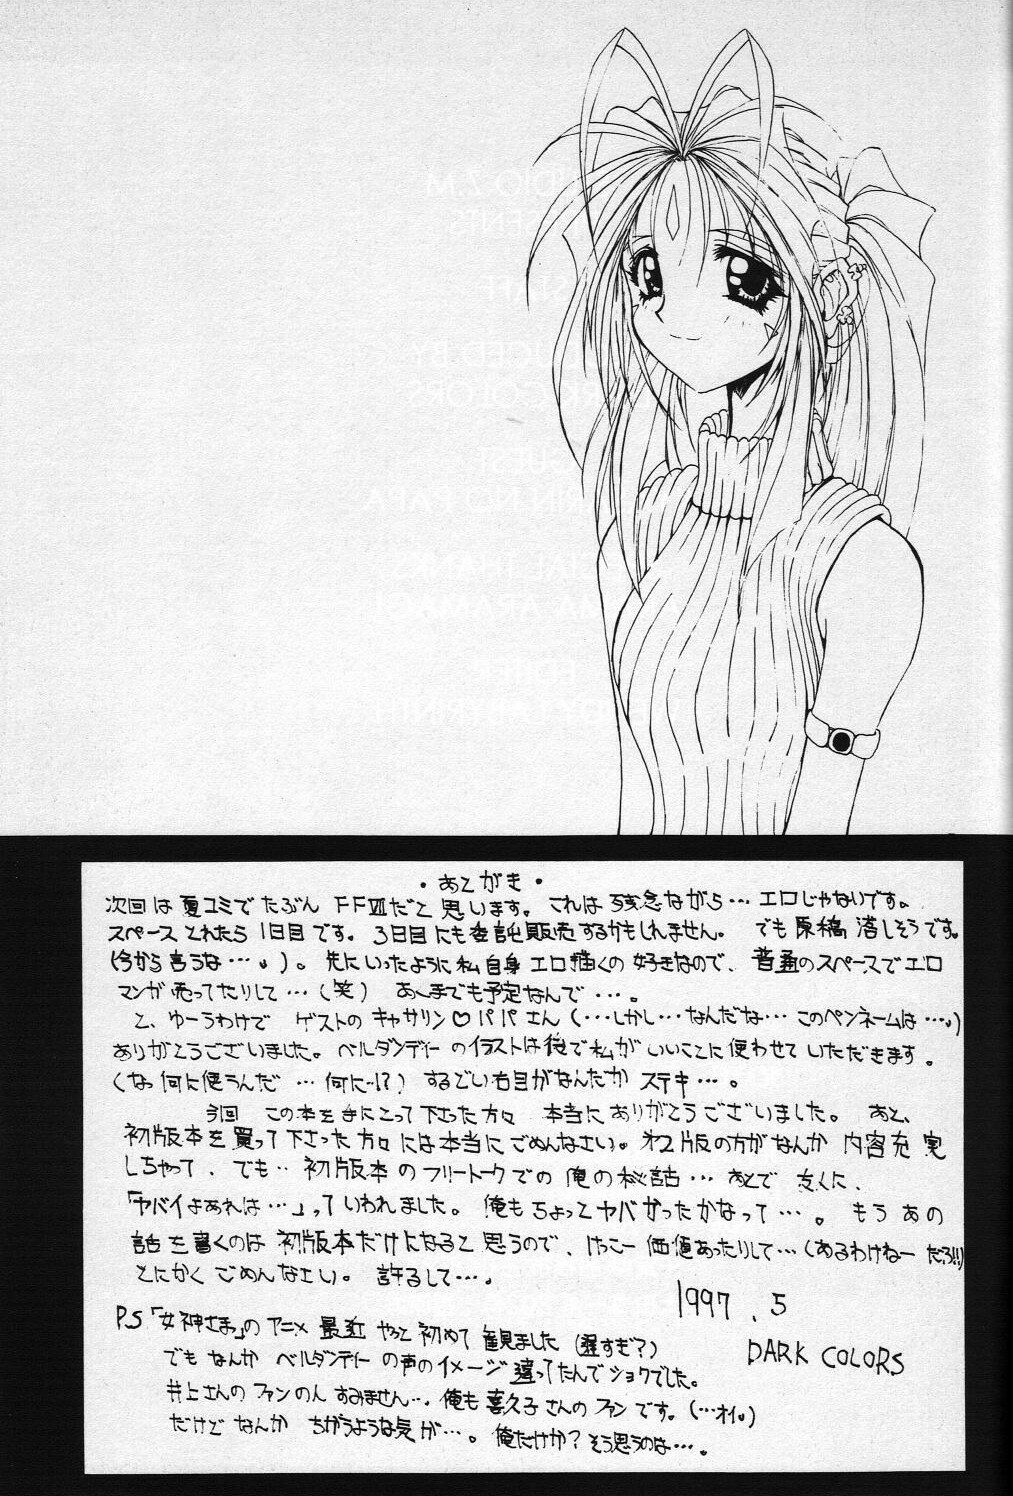 ・あとがき・
次回は夏コミでたぶんFFⅦだと思います。これは残念ながら…エロじゃないです。
スペースとれたら1日目です。3日目にも委託販売するかもしれません。でも原稿落しそうです。
(今から言うな…。)。先にいったように私自身エロ描くの好きなので、普通のスペースでエロ
マンガ売ってたりして…(笑) あくまでも予定なんで…。
と、ゆーうわけで ゲストのキャサリン♡パパさん(…しかし…なんだな…このペンネームは…。)
ありがとうございました。ベルダンディーのイラストは後で私がいいことに使わせていただきます。
(なっ何に使うんだ…何に…!?) するどい右目がなんだか ステキ…。
今回 この本を手にとって下さった方々 本当にありがとうございました。あと、
初版本を買って下さった方々には本当にごめんなさい。オ2版の方がなんか内容充実
しちゃって、でも‥初版本のフリートークでの俺の秘話…あとで友くに、
「ヤバイよあれは…」っていわれました。俺もちょっとヤバかったかなって…。もうあの
話を書くのは初版本だけになると思うので、けっこー価値あったりして…(あるわけねーだろ!!)
とにかくごめんなさい。許るして…。
1997.5
DARK COLORS
P.S「女神さまっ」のアニメ最近やっと初めて観ました(遅すぎ?)
でもなんかベルダンディーの声のイメージ違ってたんでショクでした。
井上さんのファンの人すみません…。俺も喜久子さんのファンです。(…オイ。)
だけどなんかちがうような気が…。俺だけか?そう思うのは…。